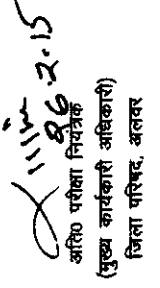 26.2.15
अति0 परीक्षा नियंत्रक
(मुख्य कार्यकारी अधिकारी)
जिला परिषद, अलवर